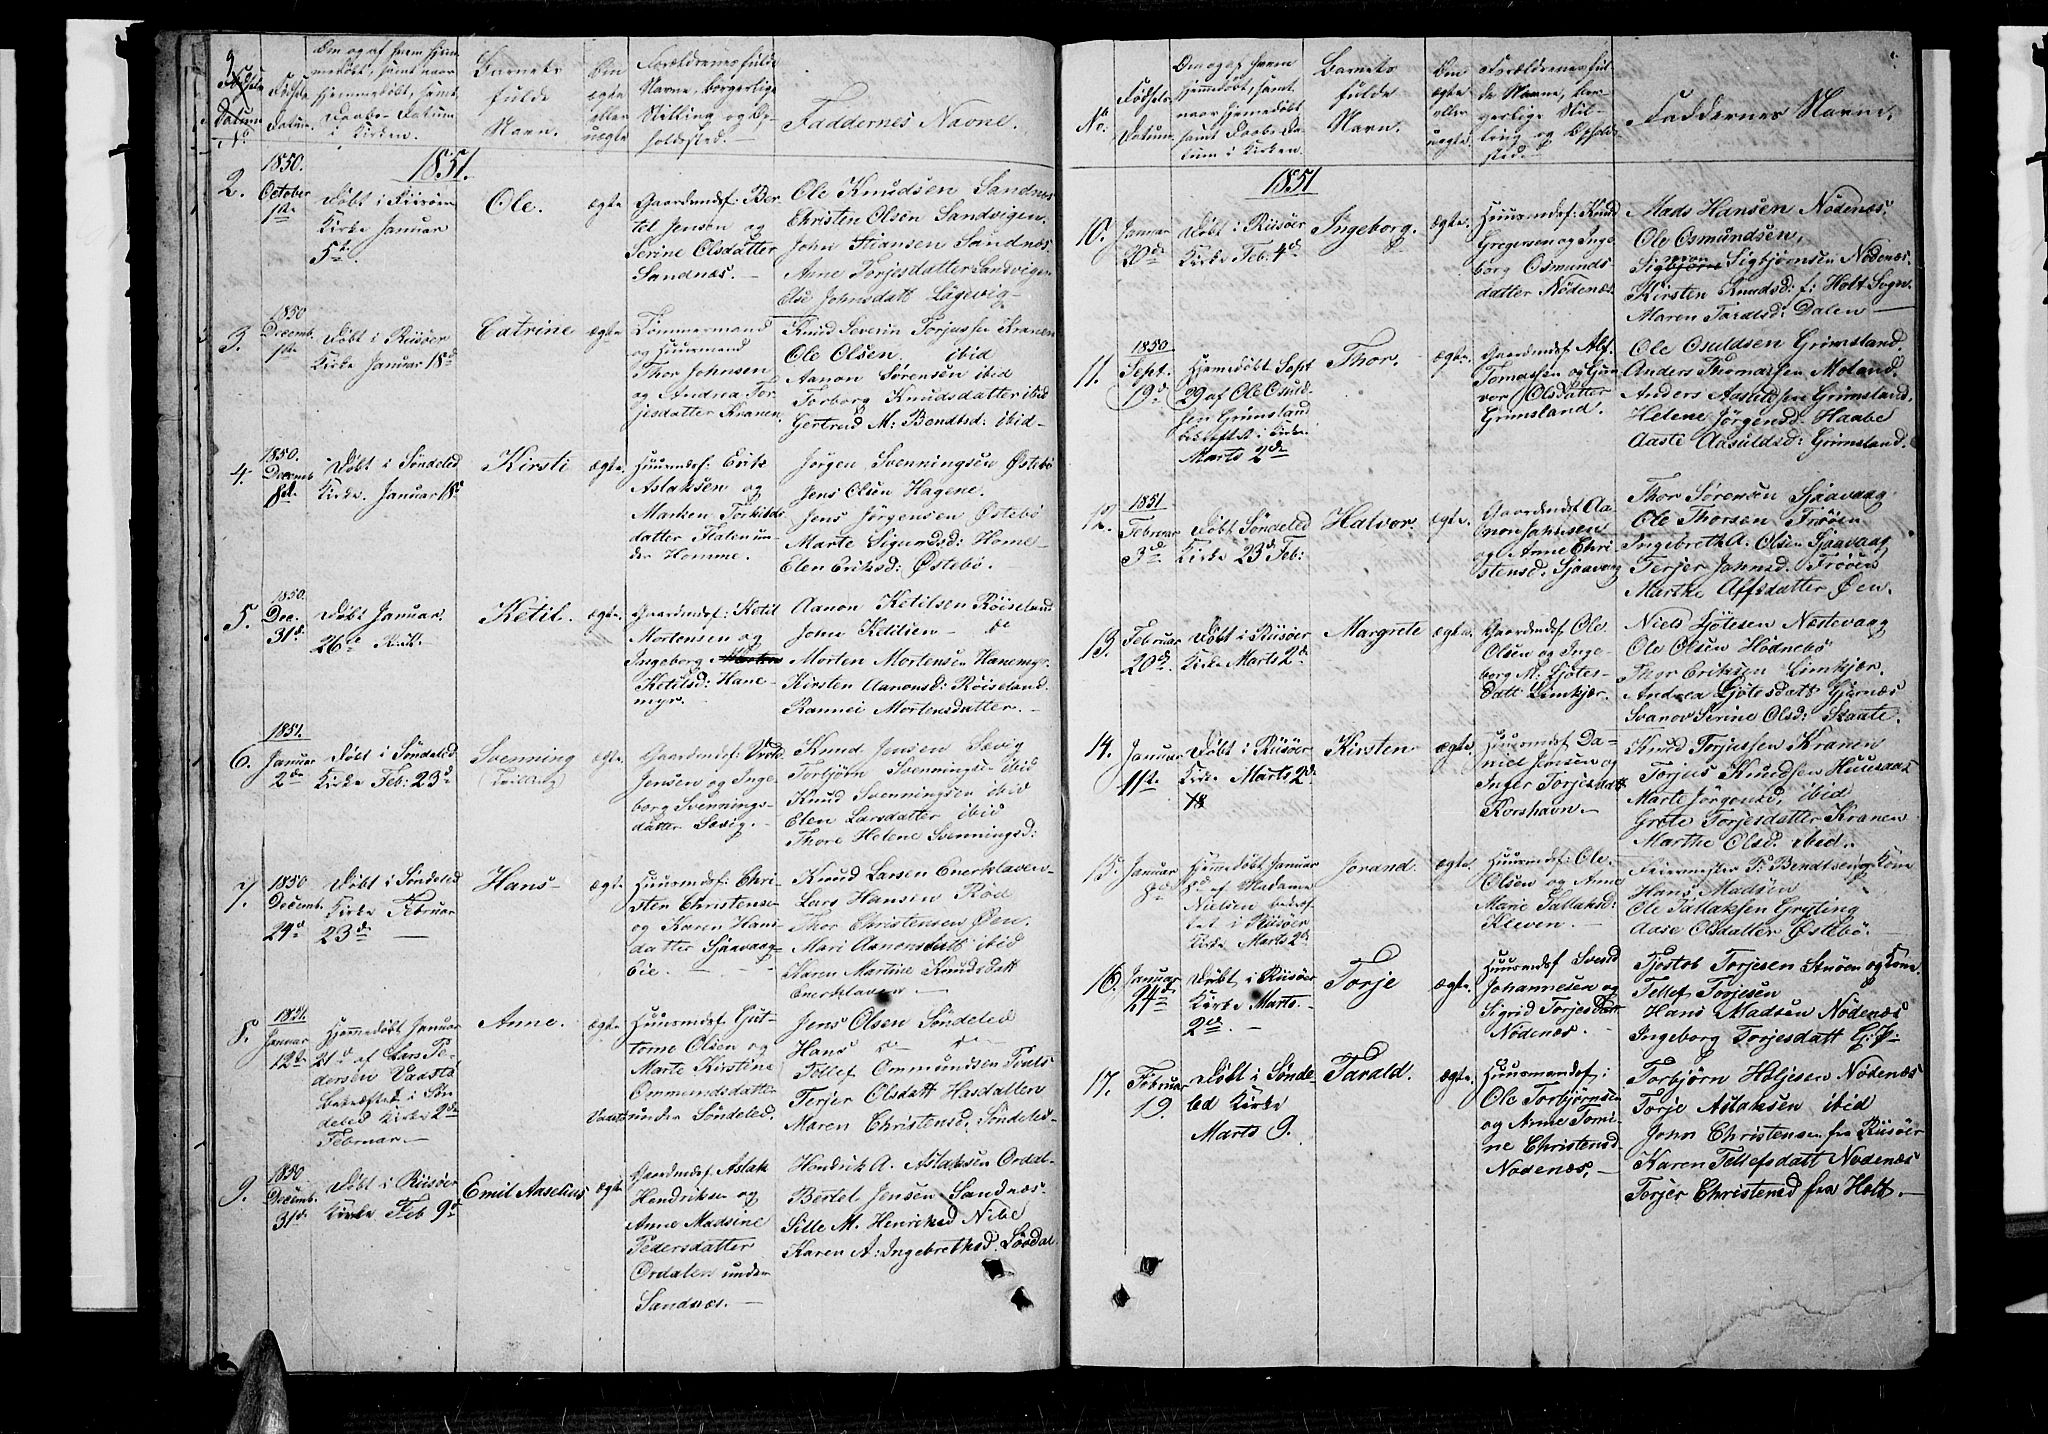 Fødsels
Datum
No
Fødsels
Datum.
Om og af hvem hjem-
medøbt, samt naar
hjemmedøbt, samt
Daabs-Datum
i Kirken.
Barnets
fulde
Navn.
Om
ægte
eller
uægte
Forældrenes fulde
Navne, borgerlige
Stilling og Op-
holdssted.
Faddernes Navne.
1851.
2.
1850.
October
1ste
Døbt i Riisøer
Kirke Januar
5te
Ole.
ægte
Gaardmdsf: Ber-
tel Jensen og
Serine Olsdatter
Sandnæs.
Ole Knudsen Sandnæs
Christen Olsen Sandvigen
John Stiansen Sandnæs.
Anne Torjesdatter Sandvigen
Else Johnsdatt Lagevig
3.
1850
Decemb.
1ste
Døbt i Riisøer
Kirke Januar 18d
Catrine
ægte
Tømmermand
og Huusmand
Thor Johnsen
og Andrea Tor-
jesdatter Kranen
Knud Severin Torjussen Kranen
Ole Olsen. ibid
Aanon Sørensen ibid
Torborg Knudsdatter ibid
Gertrud M: Bendtsd: ibid
4.
1850.
Decemb
8de
Døbt i Søndeled
Kirke. Januar 18d
Kirsti
ægte.
Huusmdsf: Erik
Aslaksen og
Marken Torkilds-
datter Flaten un-
der Homme.
Jørgen Svenningsen Østebø
Jens Olsen Hagene.
Jens Jørgensen Østebø
Marte Sigurdsd: Home
Elen Eriksd: Østebø.
5.
1850.
Dec.
31d.
Døbt Januar.
26de Riis.
Ketil.
ægte.
Gaardmdsf: Ketil
Mortensen og
Ingeborg Morten
Ketilsd: Hane-
myr.
Aanon Ketilsen Røiseland
John Ketilsen do
Morten Mortensen Hanemyr.
Kirsten Aanonsd: Røiseland.
Rannei Mortensdatter.
6.
1851.
Januar
2den
Døbt i Søndeled
Kirke Feb: 23d
Svenning
ægte.
Gaardmdsf:
Jensen og Inge-
borg Svennings-
datter Sævig.
Knud Jensen Sævig
Torbjørn Svenningse ibid
Knud Svenningsen ibid
Elen Larsdatter ibid
Thore Helene Svenningsd:
7.
1850
Decemb.
24d
Døbt i Søndeled
Kirke Februar
23de
Hans
ægte
Huusmdsf: Chri-
sten Christense
og Karen Hans
datter Sjaavaag-
Eie.
Knud Larsen Enerklaven
Lars Hansen Rød
Thor Christensen Øen.
Mari Aanonsdatt ibid
Karen Martine Knudsdatt
Enerklaven
8.
1851.
Januar
12te
Hjemmedøbt Januar
21d af Lars Pe-
dersen Vaasta
Bekræftet i Søn
deled Kirke 2de
Februar.
Anne.
ægte
Huusmdsf. Gut-
torme Olsen og
Marte Kirstine
Ommundsdatter
Vaasta under Søndeled.
Jens Olsen Søndeled
Hans do do
Tellef Ommundsen
Terjer Olsdatt Hasdalten
Maren Christensd, Søndeled
9.
1850
Decemb.
31d
Døbt i Riisøer
Kirke Feb 9d
Emil Anselius
ægte
Gaardmdsf. Aslak
Hendriksen og
Anne Madsine
Pedersdatter
Ordalen under
Sandnæs.
Hendrik A. Aslaksen Ordal
Bertel Jensen Sandnæs.
Sille M. Henriksd Nibe
Karen A: Ingebrethsd.
No.
Fødsels
Datum
Om og af hvem
hjemmedøbt, samt
naar hjemedøbt
samt Daabs Da-
tum i Kirken.
Barnets
fulde
Navn.
Om
ægte
eller
uægte
Forældrenes ful-
de Navne, bor-
gerlige Stil-
ling og Opholds-
sted.
Faddernes Navne.
1851
10.
Januar
20de
Døbt i Riisøer
Kirke Feb. 4d
Ingeborg.
ægte.
Huusmdsf: Knud
Gregersen og Inge-
borg Osmunds
datter Nødenæs
Mads Hansen Nødenæs.
Ole Osmundsen,
Sigbjørn Sigbjørnsen Nødenæs.
Kirsten Knudsd: f: Holt Sogn.
Maren Taraldsd: Dalen
11.
1850
Sept.
19de
Hjemedøbt Sept
29 af Ole Osuld-
sen Grimsland
bekræftet i Kirke
Marts 2de
Thor.
ægte.
Gaardmdsf. Alf.
Tomassen og Gun
vor Olsdatter
Grimsland.
Ole Osuldsen Grimsland.
Anders Thomassen Moland.
Anders Aasuldsen Grimsland.
Helene Jørgensd: Haabe
Aaste Aasuldsd: Grimsland.
12.
1851
Februar
3de
Døbt Søndeled
Kirke 23de Feb:
Halvor.
ægte.
Gaardmdsf Aa-
non Johnsen
og Anne Chri-
stensd. Sjaavaag
Thor Sørensen Sjaavaag
Ole Thorsen Trøen
Ingebreth A. Olsen Sjaavaag
Terjer Johnsd. Trøen
Marthe Alfsdatter Øen.
13.
Februar
20de
Døbt i Riisøer
Kirke Marts 2d.
Margrete
ægte.
Gaardmdsf. Ole.
Olsen og Inge-
borg M: Gjøtes-
datt Limkjær.
Niels Gjøtesen Næstevaag
Ole Olsen Hødnebø
Thor Eriksen Limkjær.
Andrea Gjøtesdatt Gjernæs
Svanov Serine Olsd: Skaate.
14.
Januar
11te
Døbt i Riisøer
Kirke Marts 2de
Kirsten
ægte
Huusmdsf Da-
niel Jensen og
Inger Torjesdatt
Korshavn.
Knud Torjussen Kranen
Torjus Knudsen Huusaas
Marte Jørgensd, ibid
Grete Torjesdatter Kranen
Marthe Olsd: ibid.
15.
Januar
8de
Hjemedøbt Januar
8d af Madame
Nielsen bekræf-
tet i Riisøer
Kirke Marts 2d.
Jorand.
ægte.
Huusmdsf: Ole.
Olsen og Anne
Marie Tallaksd:
Kleven.
Feiermester P: Bendtsen og Kone
Hans Madsen
Ole Tallaksen Gryting
Aase Olsdatter Østebø.
16.
Januar
24de
Døbt i Riisøer
Kirke Marts.
2de
Torje
ægte.
Huusmdsf Svend
Johannesen og
Sigrid Torjesdatt
Nødenæs.
Tjøstob Torjesen Stuøen og Kone.
Tellef Torjesen
Hans Madsen Nødenæs
Ingeborg Torjesdatt G. P.
17.
Februar
19.
Døbt i Sønde-
led Kirke
Marts 9.
Tarald.
ægte.
Huusmandsf:
Ole Torbjørnsen
og Anne Tomi-
ne Christensd:
Nødenæs.
Torbjørn Holjesen Nødenæs
Torje Aslaksen ibid
John Christensen fra Riisøer
Karen Tellefsdatt Nødenæs
Torjer Christensd fra Holt.